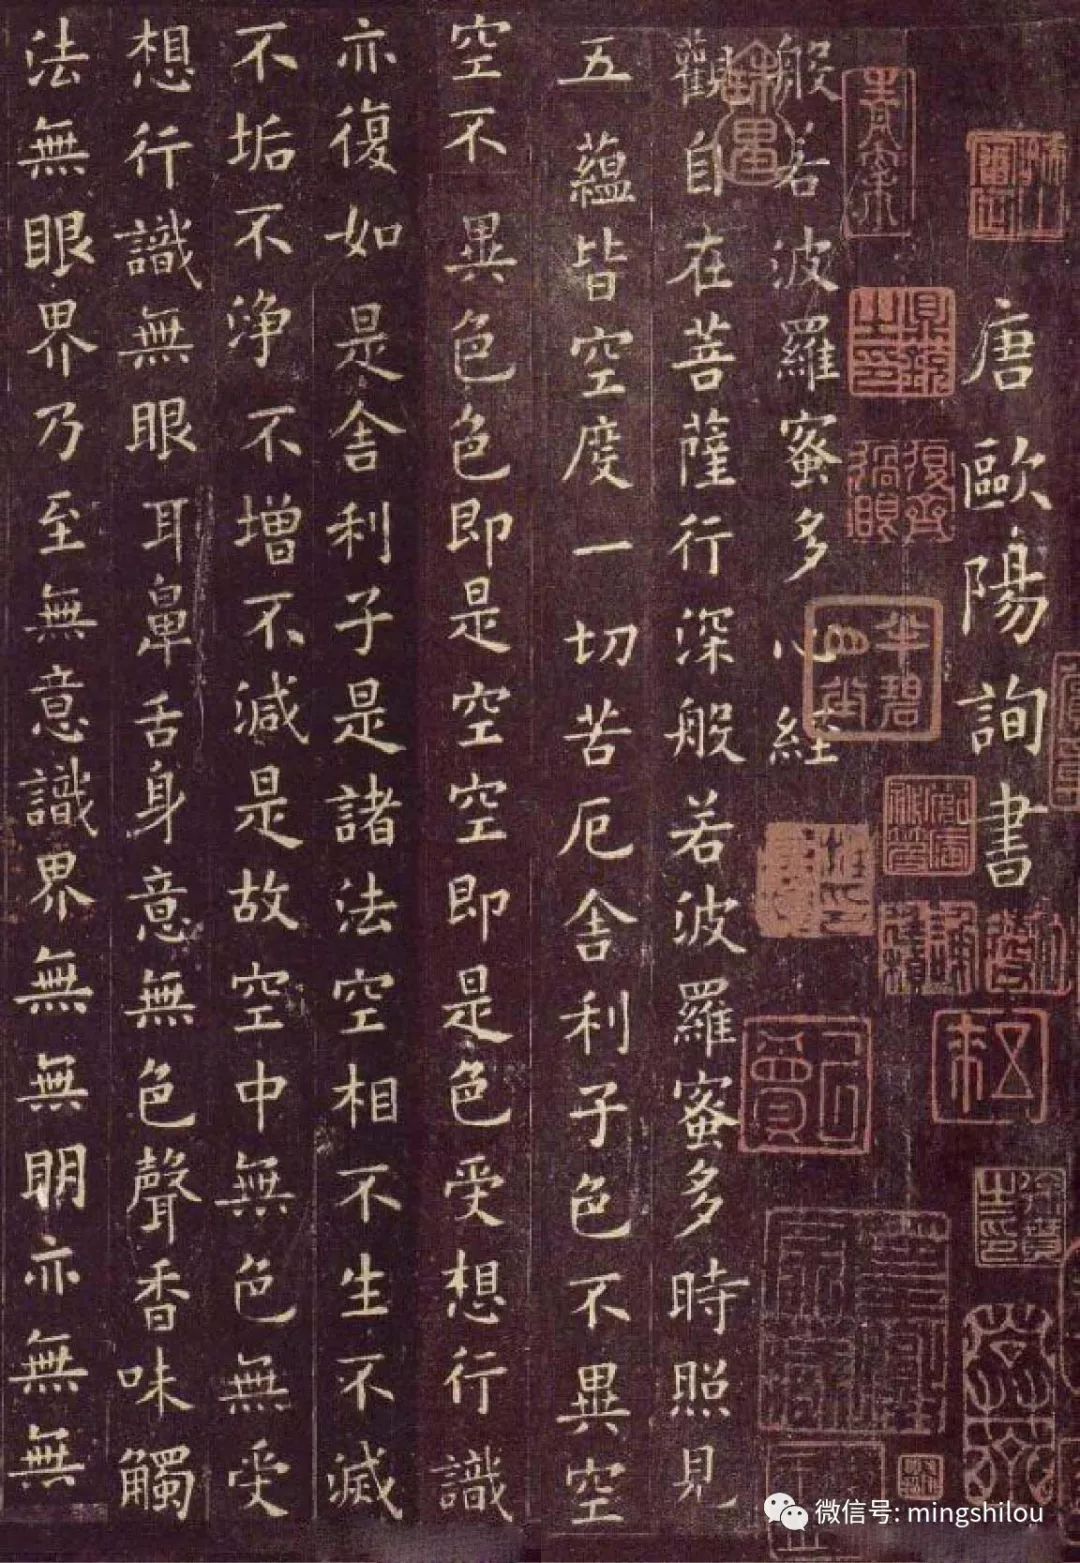 唐歐陽詢書
般若波羅蜜多心経
觀自在菩薩行深般若波羅蜜多時照見
五蘊皆空度一切苦厄舍利子色不異空
空不異色色即是空空即是色受想行識
亦復如是舍利子是諸法空相不生不滅
不垢不淨不增不減是故空中無色無受
想行識無眼耳鼻舌身意無色聲香味觸
法無眼界乃至無意識界無無明亦無無
微信号: mingshilou